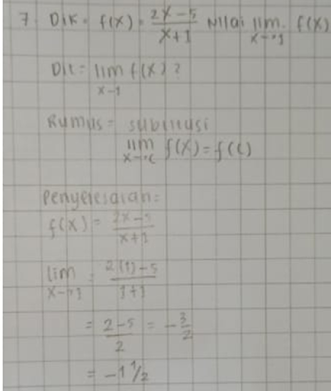 7. Dik = f(x) = (2x-5)/(x+1) Nilai lim x→1 f(x)
Dit = lim x→1 f(x) ?
Rumus = subtitusi
lim x→c f(x) = f(c)
Penyelesaian =
f(x) = (2x-5)/(x+1)
lim x→1 = (2(1)-5)/(1+1)
= (2-5)/2 = -3/2
= -1 1/2